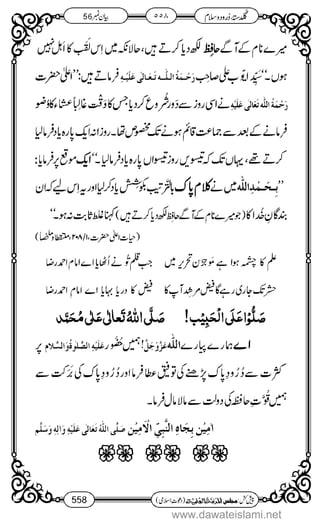 بیان نمبر 56
۵۵۸
گلدستۂ درود و سلام
میرے نام کے آگے حافظ لکھ دیا کرتے ہیں، حالانکہ میں اس لقب کا اہل نہیں
ہوں۔“ سیّد ایوب علی صاحب رَحْمَۃُ اللہِ تَعَالٰی عَلَیْہِ فرماتے ہیں: ”اعلیٰ حضرت
رَحْمَۃُ اللہِ تَعَالٰی عَلَیْہِ نے اسی روز سے دَور شروع کردیا جس کا وَقْت غالباً عشا کا وُضو
فرمانے کے بعد سے جماعت قائم ہونے تک مخصوص تھا۔ روزانہ ایک پارہ یاد فرمالیا
کرتے تھے، یہاں تک کہ تیسویں روز تیسواں پارہ یاد فرمالیا۔“ ایک موقع پر فرمایا:
”بِحَمْدِاللہ میں نے کلامِ پاک بالترتیب بکوشش یاد کرلیا اور یہ اس لیے کہ ان
بندگانِ خُدا کا (جو میرے نام کے آگے حافظ لکھ دیا کرتے ہیں) کہنا غلط ثابت نہ ہو۔“
(حیاتِ اعلیٰ حضرت، ۱/۲۰۸ ملتقطاً و ملخصاً)
علم کا چشمہ ہوا ہے مَوجزن تحریر میں جب قلم تُو نے اُٹھایا اے امام احمد رضا
حشر تک جاری رہے گا فیض مُرشِد آپ کا فیض کا دریا بہایا اے امام احمد رضا
صَلُّوْا عَلَی الْحَبِیْب! صَلَّی اللہُ تَعَالٰی عَلٰی مُحَمَّد
اے ہمارے پیارے اللہ عَزَّوَجَلَّ! ہمیں حُضُور عَلَیْہِ الصَّلٰوۃُ وَالسَّلَام پر
کثرت سے دُرُودِ پاک پڑھنے کی توفیق عطا فرما اور دُرُودِ پاک کی برکت سے
ہمیں قُوَّتِ حافظہ کی دولت سے مالا مال فرما۔
اٰمِیْن بِجَاہِ النَّبِیِّ الْاَمِیْن صَلَّی اللہُ تَعَالٰی عَلَیْہِ وَاٰلِہٖ وَسَلَّم
558
پیش کش: مجلس المدینۃ العلمیۃ (دعوتِ اسلامی)
www.dawateislami.net